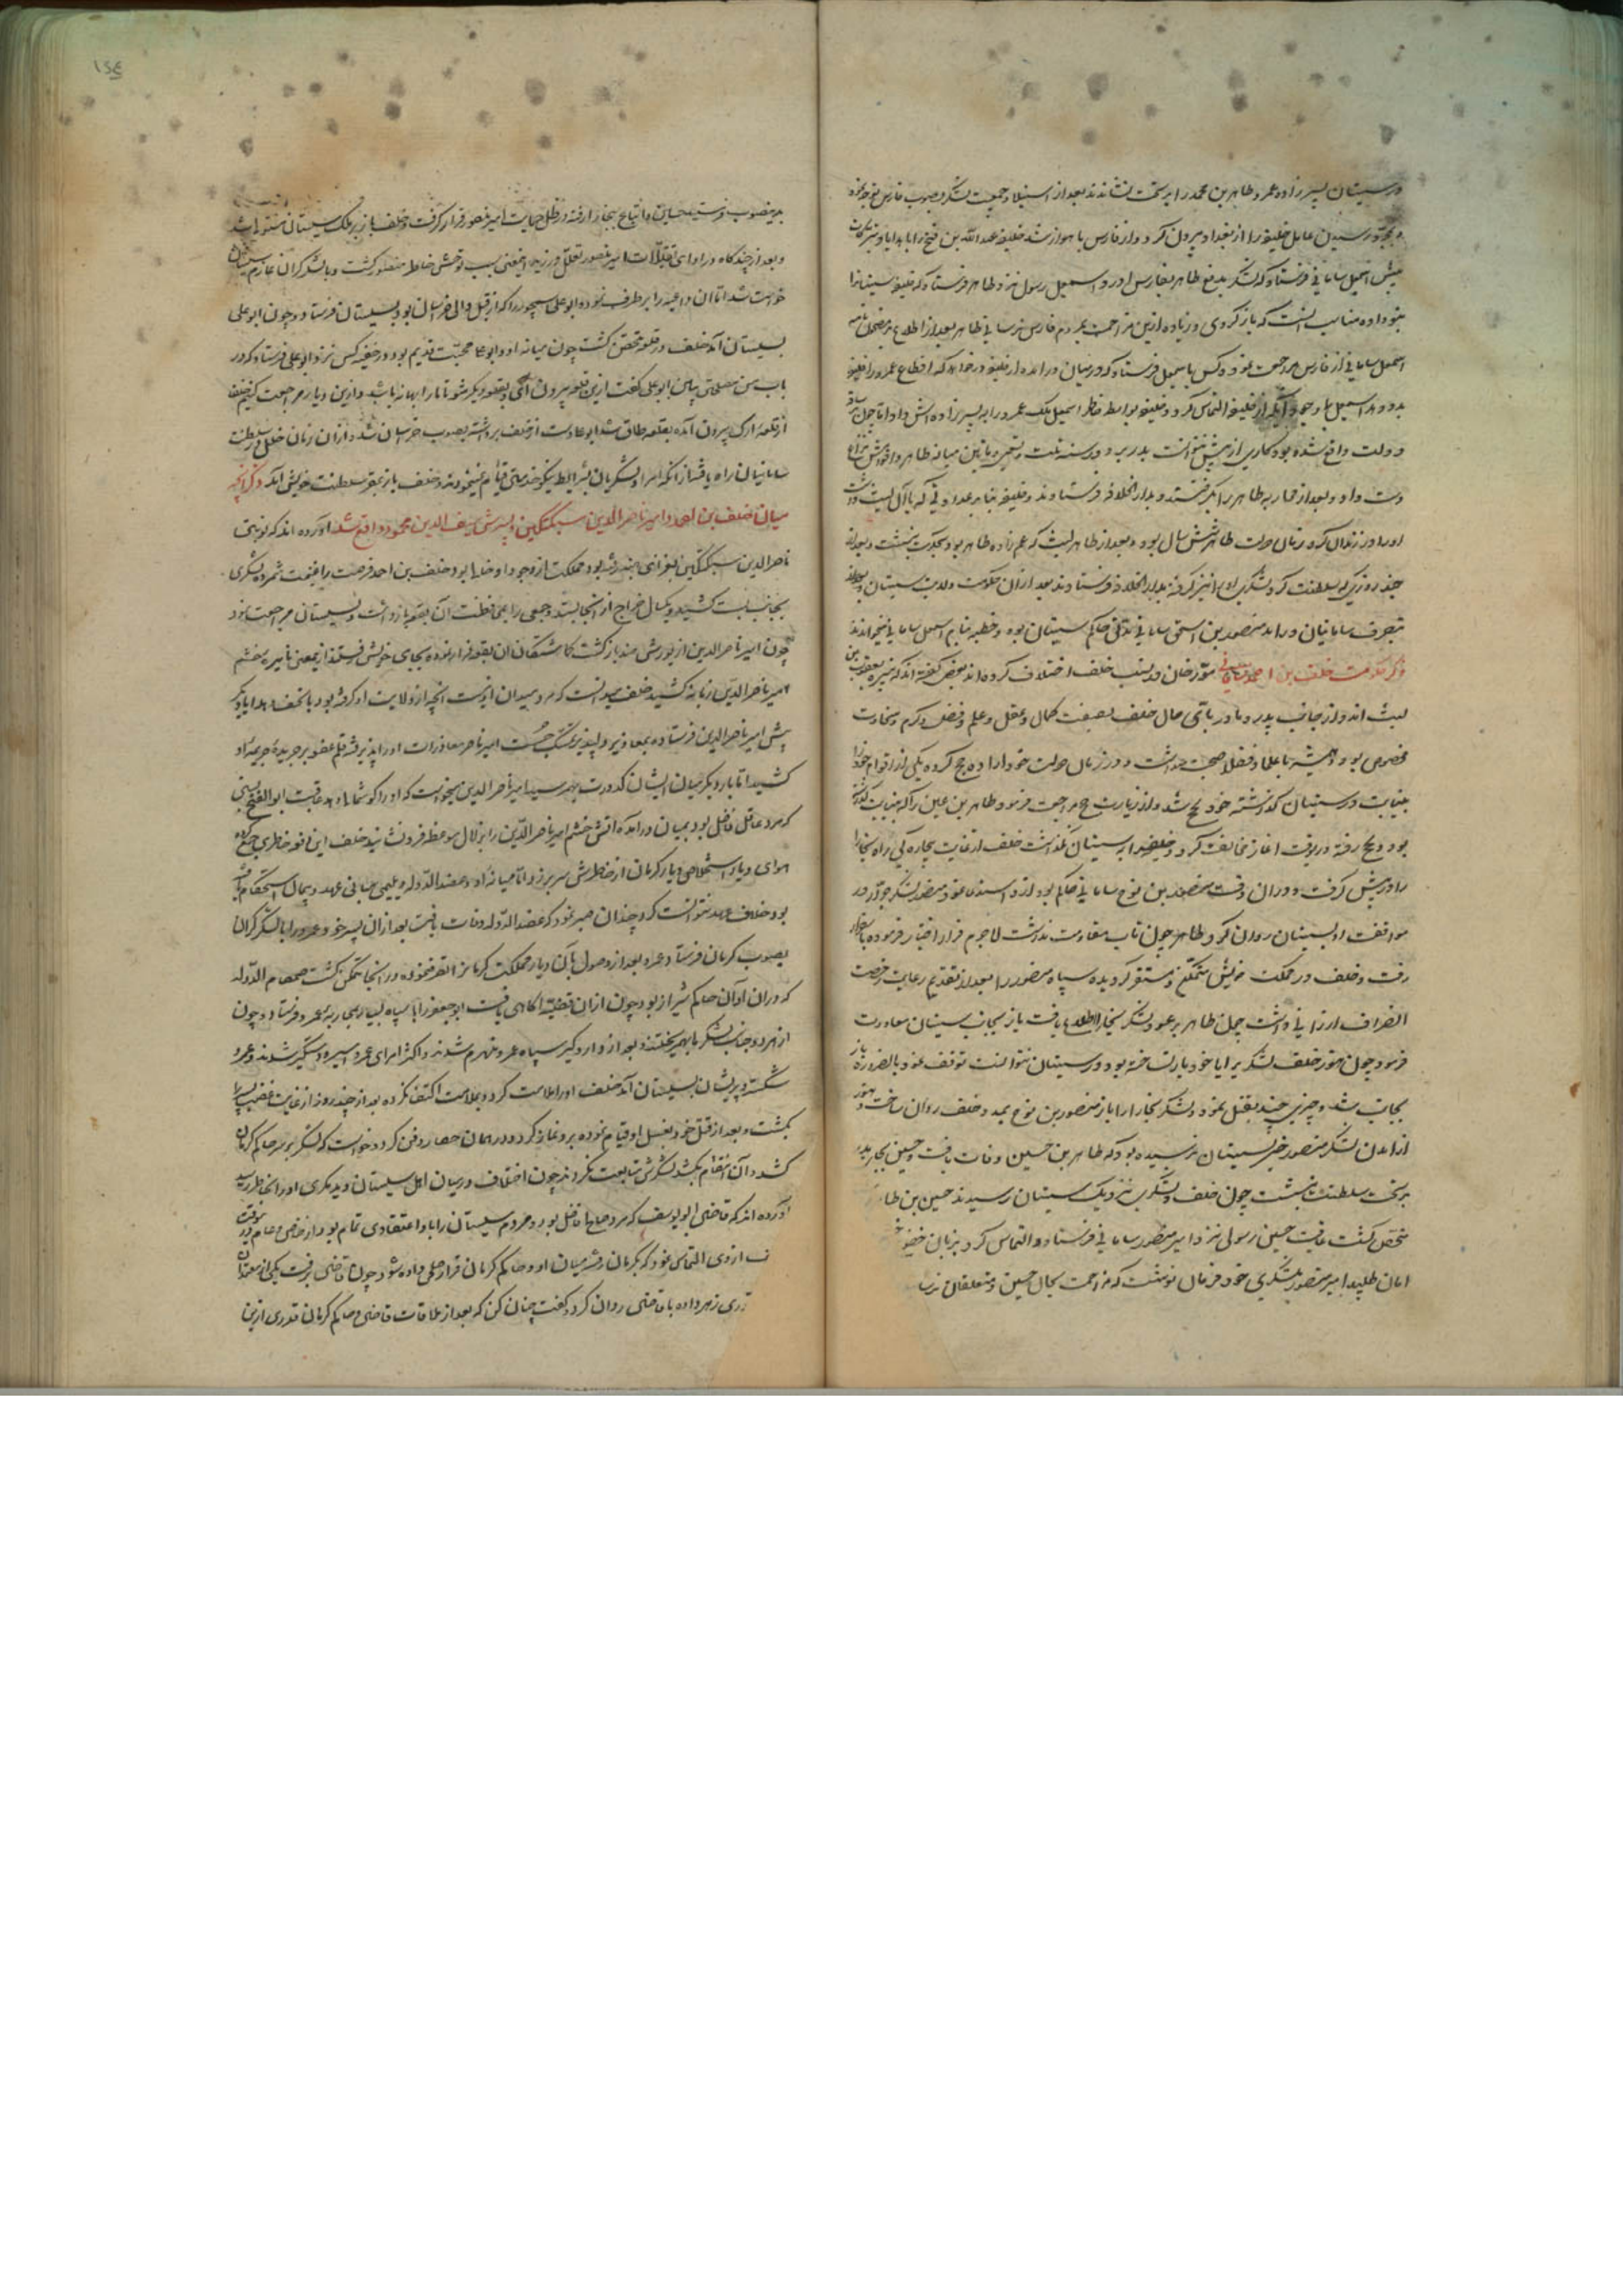 در سیستان پسرزاده عمرو طاهر بن محمد را بر تخت نشاندند بعد از استیلا و جمعیت لشکر بصوب فارس توجه نموده
و بمجرد رسیدن عامل خلیفه را از بغداد بیرون کرد و از فارس باهواز شد خلیفه عبدالله بن فتح را با هدایا و تبرکات
پیش اسمعیل سامانی فرستاد که لشکر بدفع طاهر بفارس آورد و اسمعیل رسول نزد طاهر فرستاد که خلیفه سیستانرا
بتو داده مناسب آنست که باز گردی و زیاده ازین مزاحمت بمردم فارس نرسانی طاهر بعد از اطلاع بر مضمون نامه
اسمعیل سامانی از فارس مراجعت نمود و کس باسمعیل فرستاد که در میان درآمده از خلیفه درخواهد که اقطاع عمرو را خلیفه
بدو دهد اسمعیل از خلیفه التماس کرد و خلیفه بواسطه خاطر اسمعیل ملک عمرو را به پسرزاده‌اش داد اما چون
دولت واقع شده بود کاری از پیش نتوانست برد و در سنه ثلث و تسعین و ماتین میانه طاهر و
دست داد و بعد از محاربه طاهر را بگرفتند و بدار الخلافه فرستادند و خلیفه بنابر عداوتی که با آل لیث داشت
او را در زندان کرد زمان دولت طاهر شش سال بود و بعد از طاهر لیث که عم زاده طاهر بود بحکومت بنشست و بعد از
چند روزی که سلطنت کرد لشکری او را نیز گرفته بدار الخلافه فرستادند بعد از آن حکومت ولایت سیستان
بتصرف سامانیان درآمد منصور بن اسحق سامانی مدتی حاکم سیستان بوده و خطبه بنام اسمعیل سامانی میخواندند
ذکر حکومت خلف بن احمد مورخان در نسب خلف اختلاف کرده‌اند بعضی گفته‌اند که نبیره یعقوب بن
لیث‌اند و از جانب پدر و مادر باقی حال خلف بصفت کمال و عقل و علم و فضل و کرم و سخاوت
مخصوص بود و همیشه با علما و فضلا صحبت میداشت و در زمان دولت خود اراده حج کرده یکی از اقوام خود را
بنیابت در سیستان گذاشته خود بحج شد و از زیارت حج مراجعت فرمود طاهر بن حسین را که بنیابت گذاشته
بود و بحج رفته در آنوقت آغاز مخالفت کرد و خلف را به سیستان نگذاشت خلف از غایت بیچارگی راه بخارا
را در پیش گرفت و در آن وقت منصور بن نوح سامانی حاکم بود از و استدعا نمود منصور لشکر جرار در
موافقت او بسیستان روان کرد و طاهر چون تاب مقاومت نداشت لاجرم فرار اختیار فرموده
رفت و خلف در مملکت خویش متمکن و مستقر گردیده سپاه منصور را بعد از تقدیم رعایت رخصت
انصراف ارزانی داشت چون طاهر بر عود لشکر بخارا اطلاع یافت باز بجانب سیستان معاودت
فرمود چون هنوز خلف لشکر بر ایا خود یار نساخته بود در سیستان نتوانست توقف نمود بالضروره باز
بجانب شد و چیزی چند نقل نمود و لشکر بخارا را باز منصور بن نوح بمدد خلف روان ساخت و هنوز
از آمدن لشکر منصور خبر بسیستان نرسیده بود که طاهر بن حسین وفات یافت و حسین بجای پدر
بر تخت سلطنت بنشست چون خلف و لشکری نزدیک سیستان رسیدند حسین بن طا
متحصن گشت عاقبت حسین رسولی نزد امیر منصور سامانی فرستاد و التماس کرد بزبان خضوع
امان طلبید امیر منصور بلشکری خود فرمان نوشت که مزاحمت بحال حسین و متعلقان نرسا
بدین صوب و حسین با اتباع ببخارا رفته در ظل حمایت امیر منصور قرار گرفت و خلف باز بر ملک سیستان
و بعد از چند گاه در ادای امیر منصور تعلل ورزید این معنی سبب توحش خاطر منصور گشت و با لشکر گران عازم سیستان
خواست شد اما آن داعیه را بر طرف نموده ابو علی سیمجور را که از قبل والی خراسان بود بسیستان فرستاد و چون ابو علی
بسیستان آمد خلف در قلعه متحصن گشت چون میانه او و ابو علی محبت قدیم بود در خفیه کس نزد ابو علی فرستاد که در
باب من مصلحتی بیاس ابو علی گفت ازین قلعه بیرون آی و بقلعه دیگر شو تا مارا بهانه باشد و ازین دیار مراجعت کنیم خلف
از قلعه ارک بیرون آمده بقلعه طاق شد ابو علی دست از خلف برداشته بصوب خراسان شد و از آن زمان خلل در سلطنت
سامانیان راه یافت از آنکه امرا و لشکریان بشرایط نیکو خدمتی قیام نمی‌نمودند و خلف باز بمقر سلطنت خویش آمد ذکر آنچه
میان خلف بن احمد و امیر ناصر الدین سبکتکین و پسرش سیف الدین محمود واقع شد آورده‌اند که نوبتی
ناصر الدین سبکتکین بغزای هند رفته بود و مملکت از وجود او خالی بود خلف بن احمد فرصت را غنیمت شمرده لشکری
بجانب بست کشید و یکسال خراج از آنجا بستد و جمعی را بمحافظت آن بقعه بازداشت و بسیستان مراجعت نمود
چون امیر ناصر الدین از یورش هند بازگشت گماشتگان آن بقعه فرار نموده بجای خویش رفتند ازین معنی نایره خشم
امیر ناصر الدین زبانه کشید خلف میدانست که مرد میدان او نیست آنچه از ولایت او گرفته بود با تحف و هدایا دیگر
پیش امیر ناصر الدین فرستاده بمعاذیر دلپذیر تمسک جست امیر ناصر معاذرات او را پذیرفته رقم عفو بر جریده جریمه او
کشید اما بار دیگر میان ایشان کدورت بهم رسید امیر ناصر الدین میخواست که او را گوشمال دهد عاقبت ابو الفتح بستی
که مرد عاقل فاضل بود بمیان درآمد که آتش خشم امیر ناصر الدین را بزلال موعظه فرو نشانید خلف این نوبه خاطر جمع کرده
هوای دیار استخلاص دیار کرمان از خاطرش سر برزد و اما میانه او و عضد الدوله دیلمی مبانی عهد و پیمان استحکام یافته
بود خلاف عهد نتوانست کرد چندان صبر نمود که عضد الدوله وفات یافت بعد از آن پسر خود عمرو را با لشکر گران
بصوب کرمان فرستاد عمرو بعد از وصول بآن دیار مملکت کرمانرا تصرف نموده در آنجا متمکن گشت صمصام الدوله
که در آن اوان حاکم شیراز بود چون از آن قضیه آگاهی یافت ابو جعفر را با سپاه بسیار بمحاربه عمرو فرستاد و چون
از هر دو جانب لشکر بهم ریختند و بعد از دار و گیر سپاه عمرو منهزم شدند و اکثر امرای عمرو اسیر و دستگیر شدند و عمرو
شکسته و پریشان بسیستان آمد خلف او را ملامت کرد و بملامت اکتفا نکرده بعد از چند روز از غایت غضب پسر را
بکشت و بعد از قتل خود بغسل او قیام نموده برو نماز کرد و در همان حصار دفن کرد و خواست که لشکر بر سر حاکم کرمان
کشد و آن انتقام بکشد لشکرش متابعت نکردند چون اختلاف در میان اهل سیستان دید مکری او را بخاطر رسید
آورده‌اند که قاضی ابو یوسف که مرد صالح فاضل بود و مردم سیستان را با او اعتقادی تمام بود از خاص و عام
از وی التماس نمود که بکرمان رفته میان او و حاکم کرمان قرار صلحی داده شود چون قاضی برفت یکی از معتمدان
زهر داده با قاضی روان کرد و گفت چنان کن که بعد از ملاقات قاضی و حاکم کرمان قدری ازین